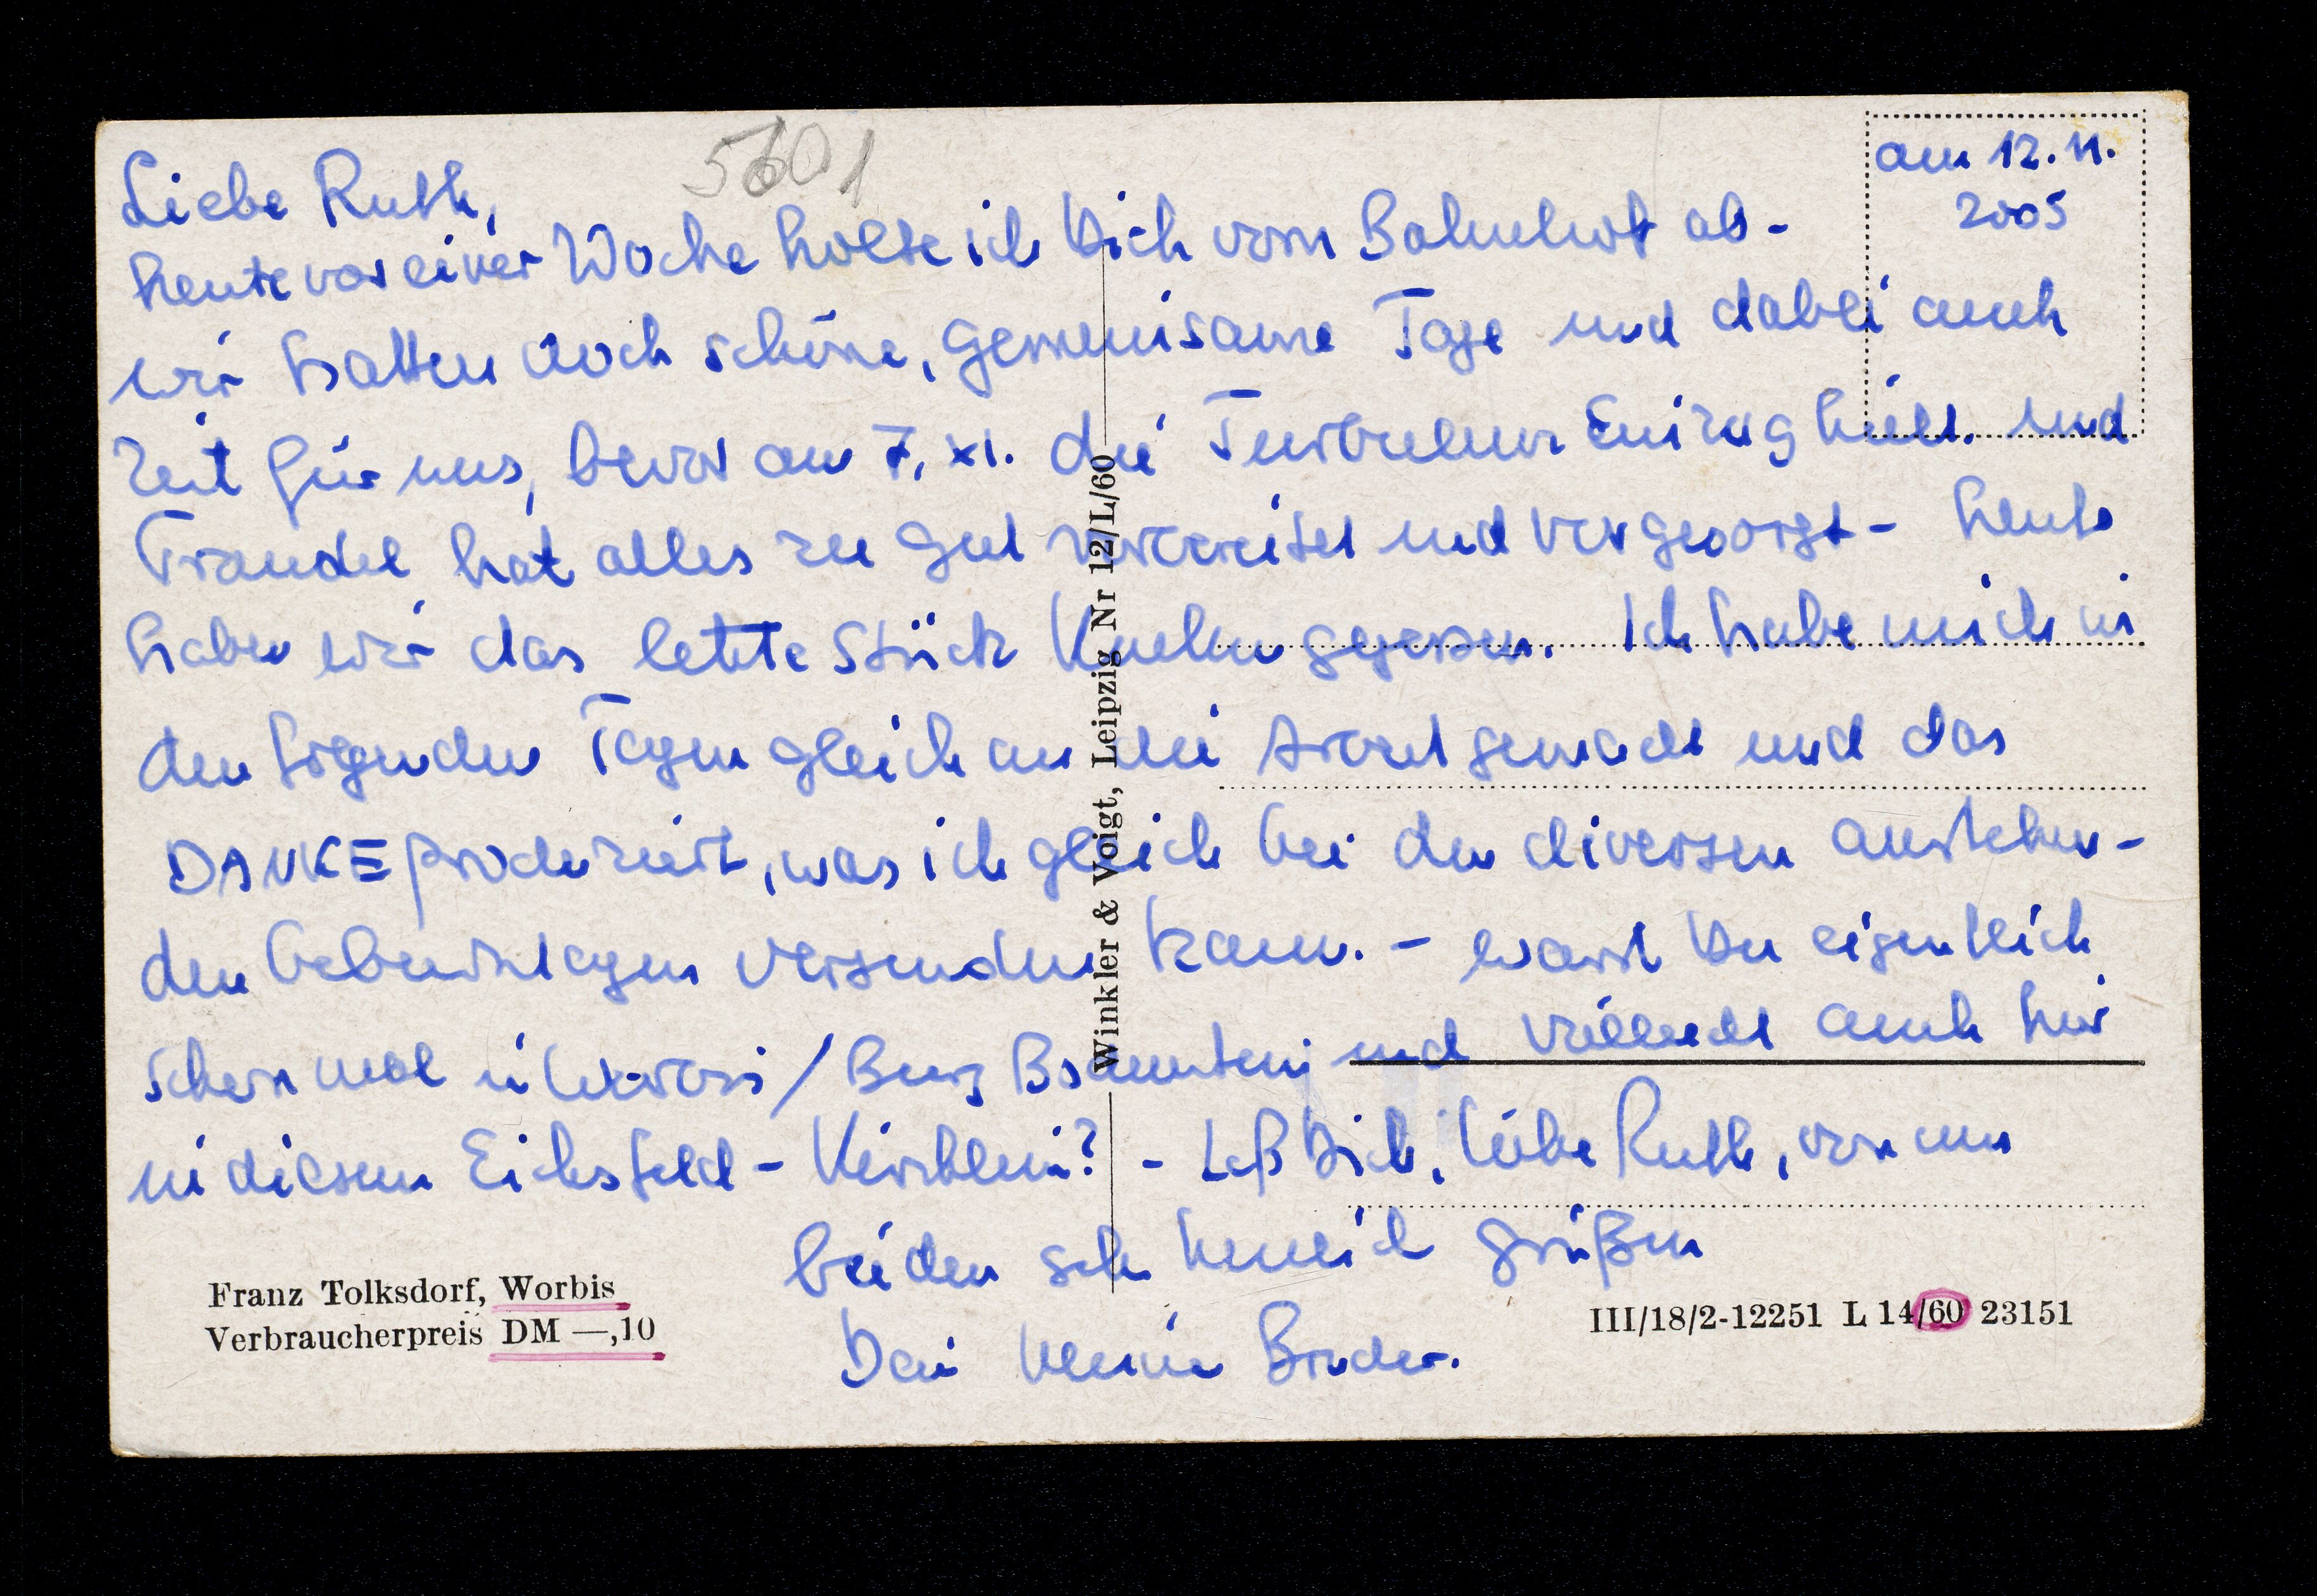 5601
am 12.11.
2005
Liebe Ruth,
heute vor einer Woche holte ich Dich vom Bahnhof ab -
wir hatten doch schöne, gemeinsame Tage und dabei auch
Zeit für uns, bevor am 7. XI. die Einzug hielt. und
Traudel hat alles so gut vorbereitet und vorgesorgt - heute
haben wir das letzte Stück Kuchen gegessen. Ich habe mich in
den folgenden Tagen gleich an die Arbeit gemacht und das
DANKE produziert, was ich gleich bei den diversen anstehen-
den Geburtstagen versenden kann. - warst Du eigentlich
schon mal in / Burg und vielleicht auch hier
in diesem Eichsfeld - Kirchlein? - Laß Dich, liebe Ruth, von uns
beiden sehr herzlich grüßen
Dein kleiner Bruder.
Winkler & Voigt, Leipzig Nr 12/L/60
Franz Tolksdorf, Worbis
Verbraucherpreis DM —,10
III/18/2-12251 L 14/60 23151